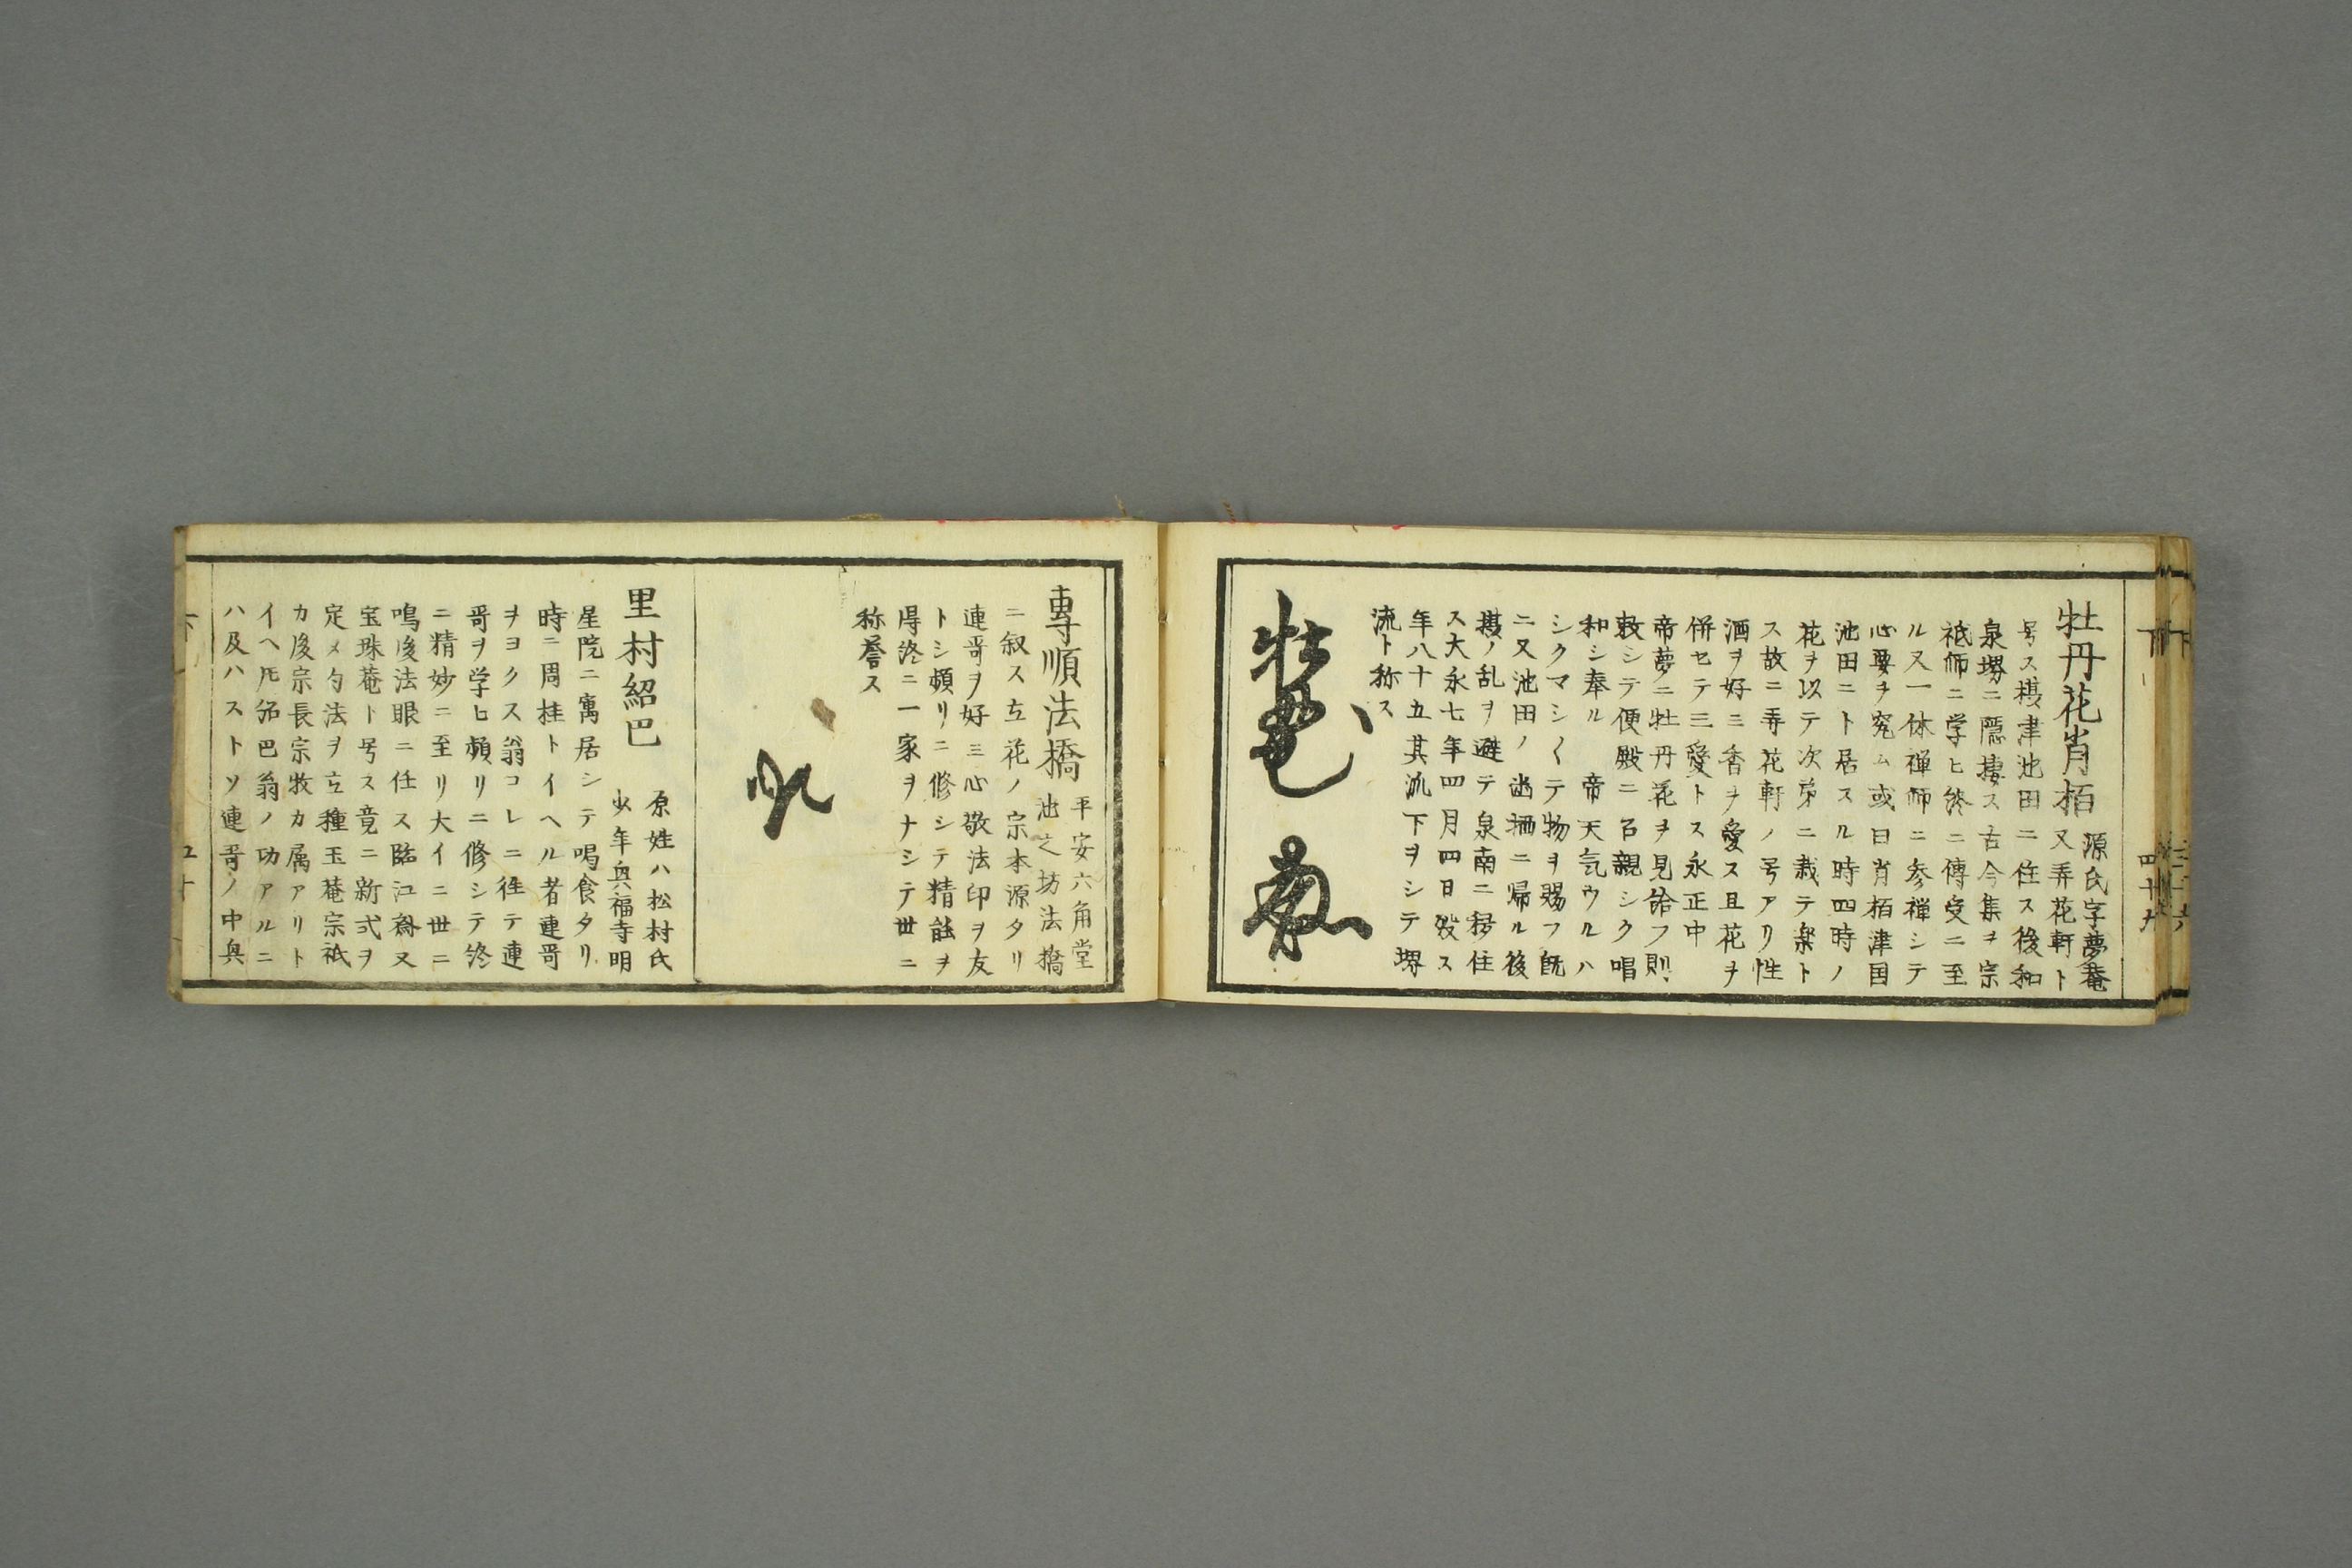 牡丹花肖栢
源氏字夢菴
又弄花軒ト
号ス摂津池田ニ住ス後和
泉堺ニ隠棲ス古今集ヲ宗
祗師ニ学ヒ終ニ傳受ニ至
ル又一休禅師ニ参禅シテ
心要ヲ究ム或曰肖栢津国
池田ニト居スル時四時ノ
花ヲ以テ次第ニ栽テ楽ト
ス故ニ弄花軒ノ号アリ性
酒ヲ好ミ香ヲ愛ス且花ヲ
併セテ三愛トス永正中
帝夢ニ牡丹花ヲ見給フ則
敕シテ便殿ニ召親シク唱
和シ奉ル 帝天気ウルハ
シクマシ〱テ物ヲ賜フ既
ニ又池田ノ幽栖ニ帰ル後
摂ノ乱ヲ避テ泉南ニ移住
ス大永七年四月四日歿ス
年八十五其流下ヲシテ堺
流ト称ス
四十九
専順法橋
平安六角堂
池之坊法橋
ニ叙ス立花ノ宗本源タリ
連哥ヲ好ミ心敬法印ヲ友
トシ頻リニ修シテ精詣ヲ
得終ニ一家ヲナシテ世ニ
称誉ス
里村紹巴
原姓ハ松村氏
少年興福寺明
星院ニ寓居シテ喝食タリ
時ニ周桂トイヘル者連哥
ヲヨクス翁コレニ従テ連
哥ヲ学ヒ頻リニ修シテ終
ニ精妙ニ至リ大イニ世ニ
鳴後法眼ニ任ス臨江斎又
宝珠菴ト号ス竟ニ新式ヲ
定メ句法ヲ立種玉菴宗祇
カ後宗長宗牧カ属アリト
イヘ𪜈紹巴翁ノ功アルニ
ハ及ハストソ連哥ノ中興